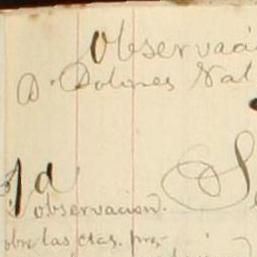 Observaci
D. Dolores Nal
1a
observacion.
obre las ctas. pre-